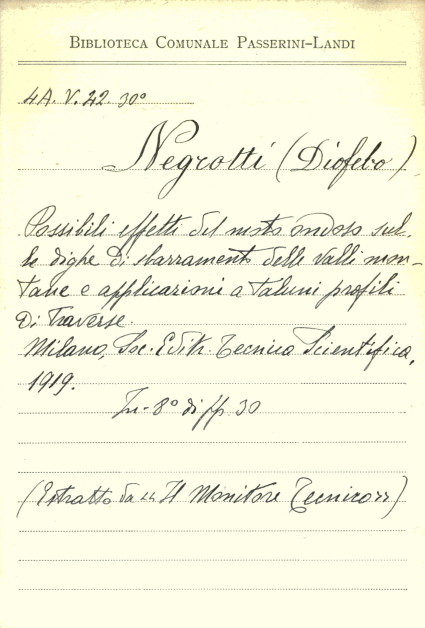 BIBLIOTECA COMUNALE PASSERINI-LANDI
4A. V. 22. 30°
Negrotti (Diofebo)
Possibili effetti del moto ondoso sul-
le dighe di sbarramento delle valli mon-
tane e applicazioni a taluni profili
di traverse.
Milano, Soc. Editr. Tecnica Scientifica,
1919.
In-8° di pp. 30
(Estratto da "Il Monitore Tecnico")